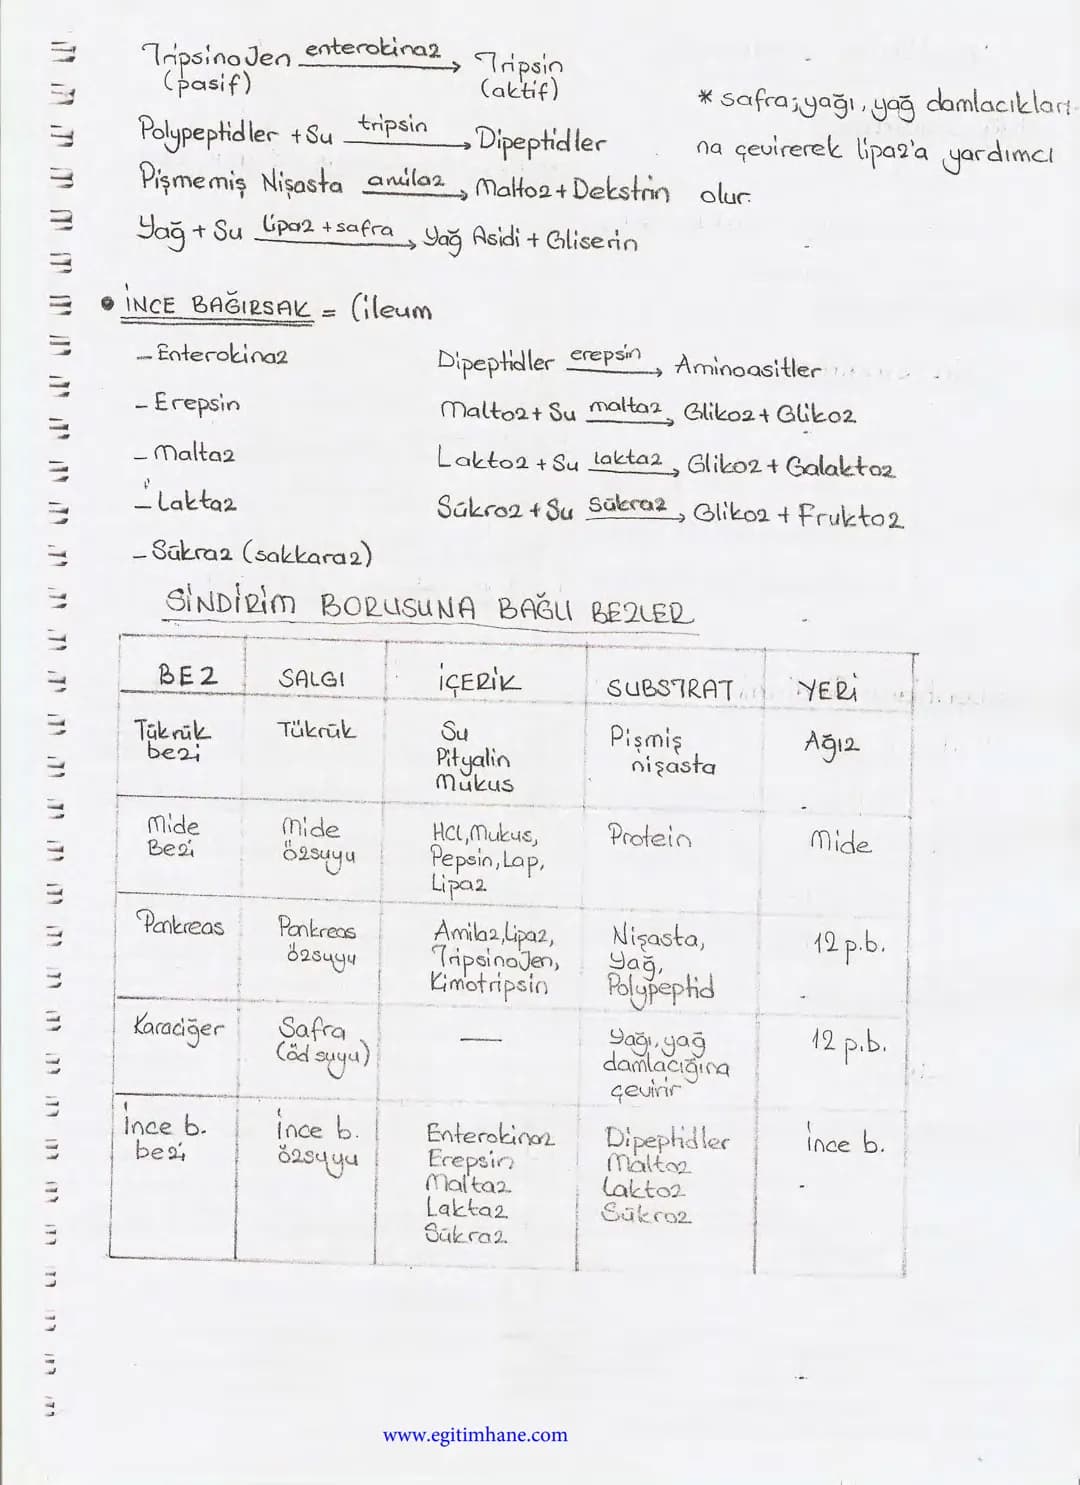 TripsinoJen enterokinaz Tripsin
(pasif) (aktif)
Polypeptidler + Su tripsin Dipeptidler
Pişmemiş Nişasta amilaz Maltoz + Dekstrin
Yağ + Su Lipaz + safra Yağ Asidi + Gliserin
* safra;yağı, yağ damlacıkları-
na çevirerek lipaz'a yardımcı
olur.
• İNCE BAĞIRSAK = (ileum
- Enterokinaz
- Erepsin
- Maltaz
- Laktaz
- Sükraz (sakkaraz)
Dipeptidler erepsin Aminoasitler
Maltoz + Su maltaz Glikoz + Glikoz
Laktoz + Su laktaz Glikoz + Galaktoz
Sükroz + Su Sükraz Glikoz + Fruktoz
SİNDİRİM BORUSUNA BAĞLI BEZLER
BEZ SALGI İÇERİK SUBSTRAT YERİ
Tükrük Tükrük Su Pişmiş Ağız
bezi Pityalin nişasta
Mukus
Mide Mide HCl, Mukus, Protein Mide
Bezi özsuyu Pepsin, Lap,
Lipaz
Pankreas Pankreas Amilaz, Lipaz, Nişasta, 12 p.b.
özsuyu TripsinoJen, Yağ,
Kimotripsin Polypeptid
Karaciğer Safra — Yağı, yağ 12 p.b.
(öd suyu) damlacığına
çevirir
İnce b. İnce b. Enterokinaz Dipeptidler İnce b.
bezi özsuyu Erepsin Maltoz
Maltaz Laktoz
Laktaz Sükroz
Sükraz
www.egitimhane.com